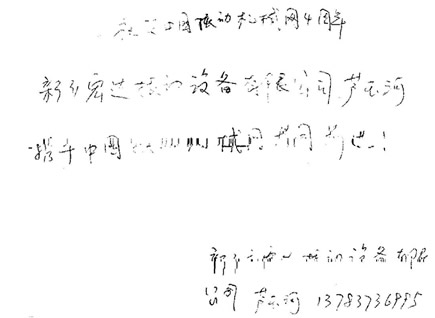 祝贺中国振动机械网4周年
新乡宏达振动设备有限公司 芦玉河
携手中国振动机械网共同前进!
新乡宏达振动设备有限
公司 芦玉河 13783736995